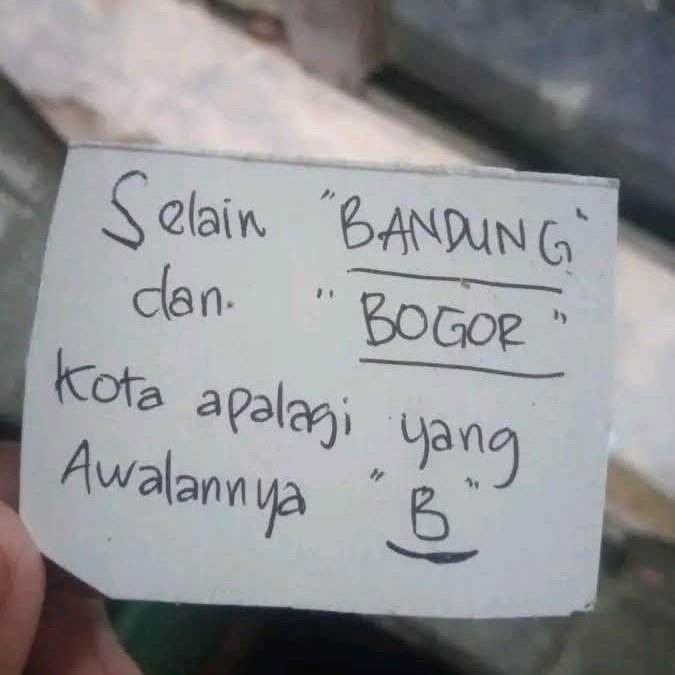 Selain "BANDUNG"
dan. "BOGOR"
Kota apalagi yang
Awalannya "B"